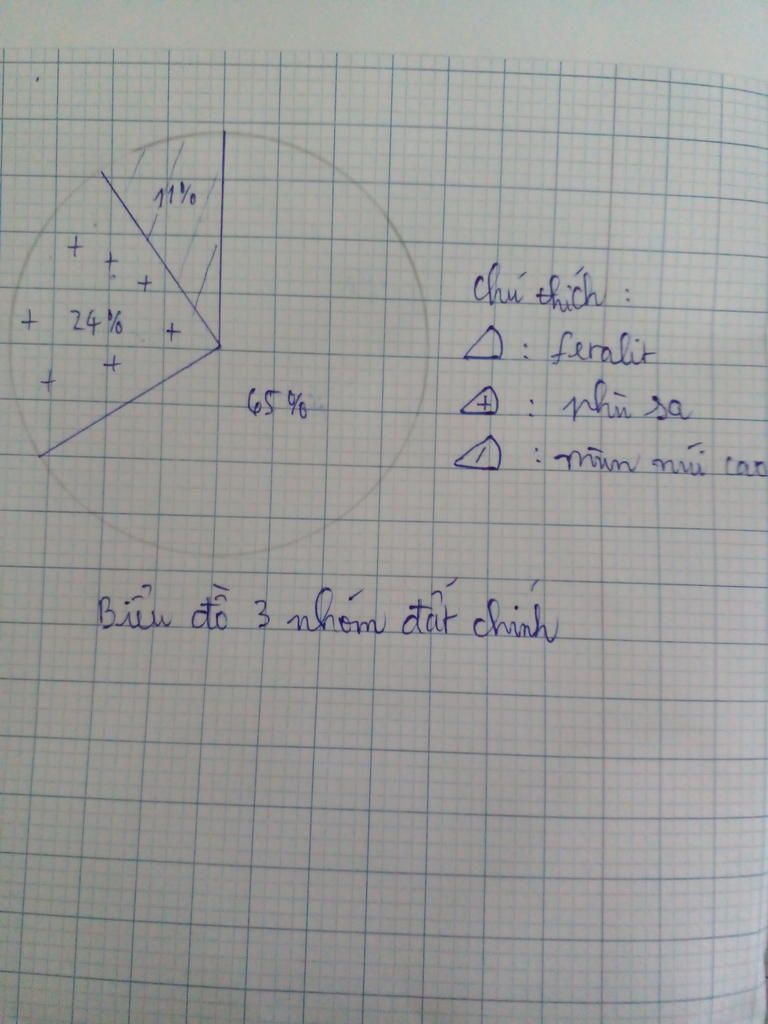 11%
24%
65%
Chú thích :
: feralit
+ : phù sa
: mùn núi cao
Biểu đồ 3 nhóm đất chính